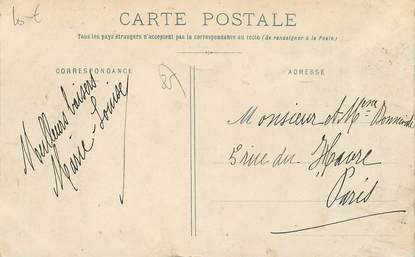 CARTE POSTALE
Tous les pays étrangers n'acceptent pas la correspondance au recto (Se renseigner à la Poste)
CORRESPONDANCE
Meilleurs baisers
Marie-Louise
ADRESSE
Monsieur et Mme
5 rue du Havre
Paris